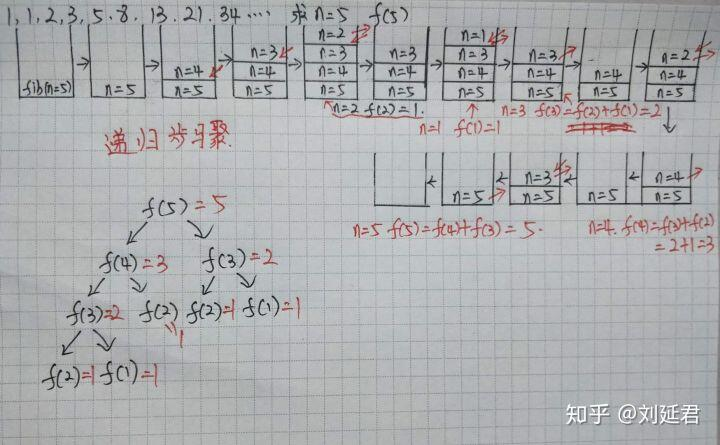 1, 1, 2, 3, 5. 8, 13. 21. 34 ···· 求 n=5 f(5)
fib(n=5)
n=5
n=4
n=5
n=3
n=4
n=5
n=2
n=3
n=4
n=5
n=3
n=4
n=5
n=1
n=3
n=4
n=5
n=3
n=4
n=5
n=4
n=5
n=2
n=4
n=5
n=2 f(2)=1.
n=1 f(1)=1
n=3 f(3)=f(2)+f(1)=2
递归步骤
n=5
n=3
n=5
n=5
n=4
n=5
n=5 f(5)=f(4)+f(3)=5.
n=4. f(4)=f(3)+f(2)
=2+1=3
f(5)=5
f(4)=3 f(3)=2
f(3)=2 f(2) f(2)=1 f(1)=1
=1
f(2)=1 f(1)=1
知乎 @刘延君